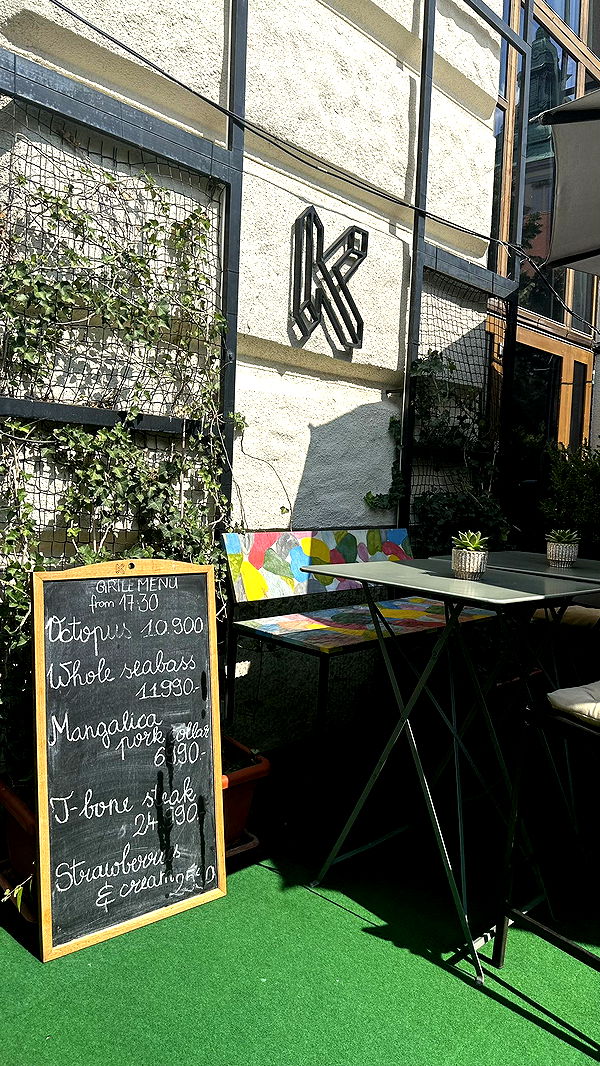 K
GRILL MENU
from 17.30
Octopus 10.900
Whole seabass
11990.-
Mangalica
pork collar
6990.-
T-bone steak
Strawberries
& cream